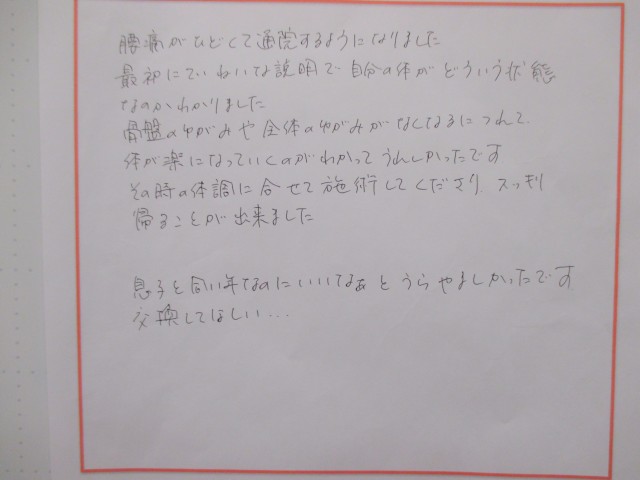 腰痛がひどくて通院するようになりました
最初にていねいな説明で自分の体がどういう状態
なのかわかりました
骨盤のゆがみや全体のゆがみがなくなるにつれて、
体が楽になっていくのがわかってうれしかったです
その時の体調に合せて施術してくださり、スッキリ
帰ることが出来ました
息子と同い年なのにいいなぁとうらやましかったです
交換してほしい…